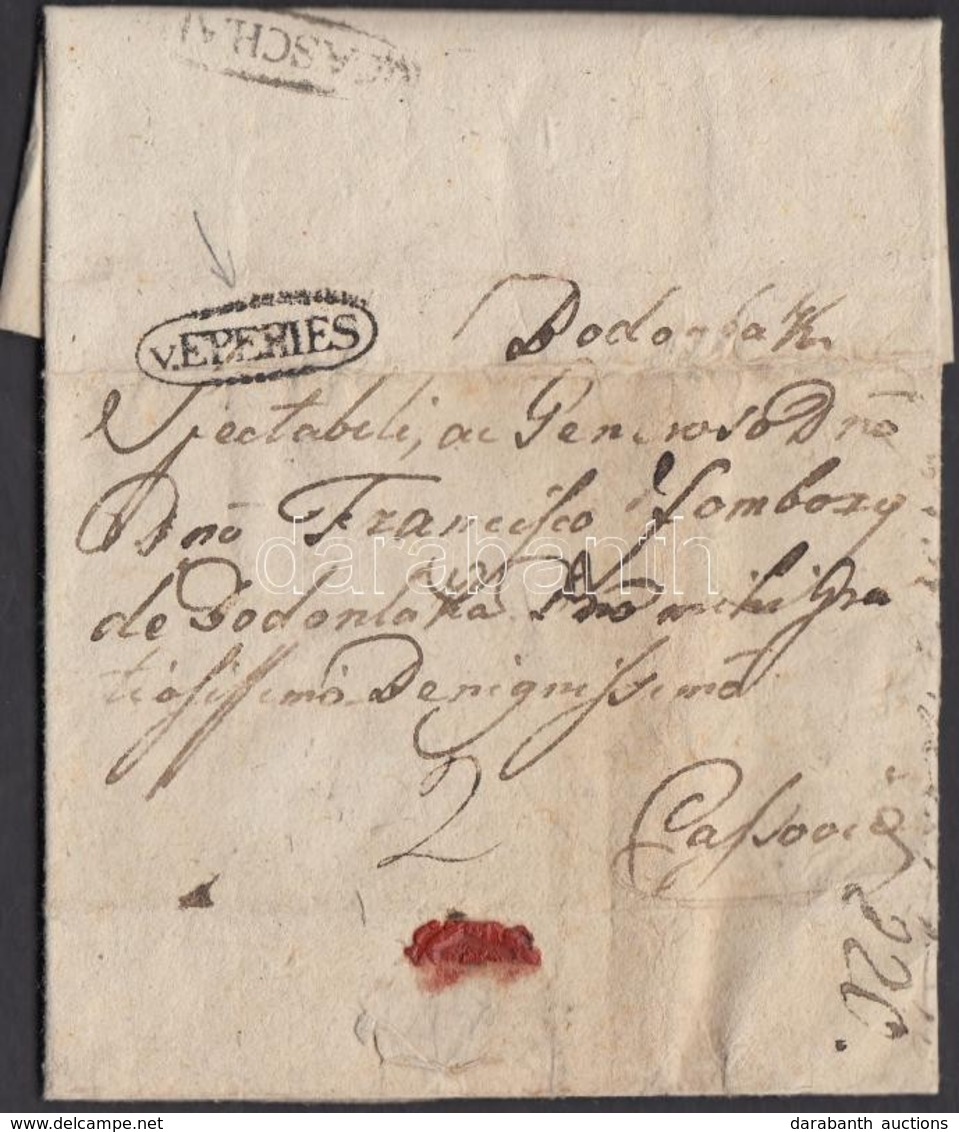 V. CASCHAU
v. EPERIES
Bodonlak
Spectabili, ac Generoso Dnō
Dnō Francisco Sombory
de Bodonlaka Dnō mihi Gra
tiosissimō Benignissimō
2
Cassoviæ
darabanth
darabanth auctions